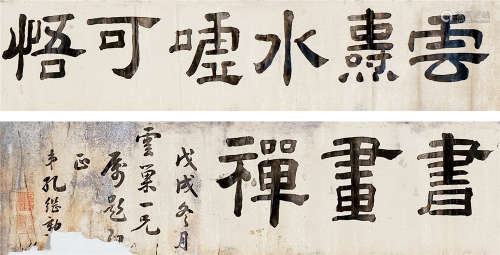 雲熏水嘘可悟
書畫禪
戊戌冬月
雲巢一兄
屬題即
正
弟孔繼勳